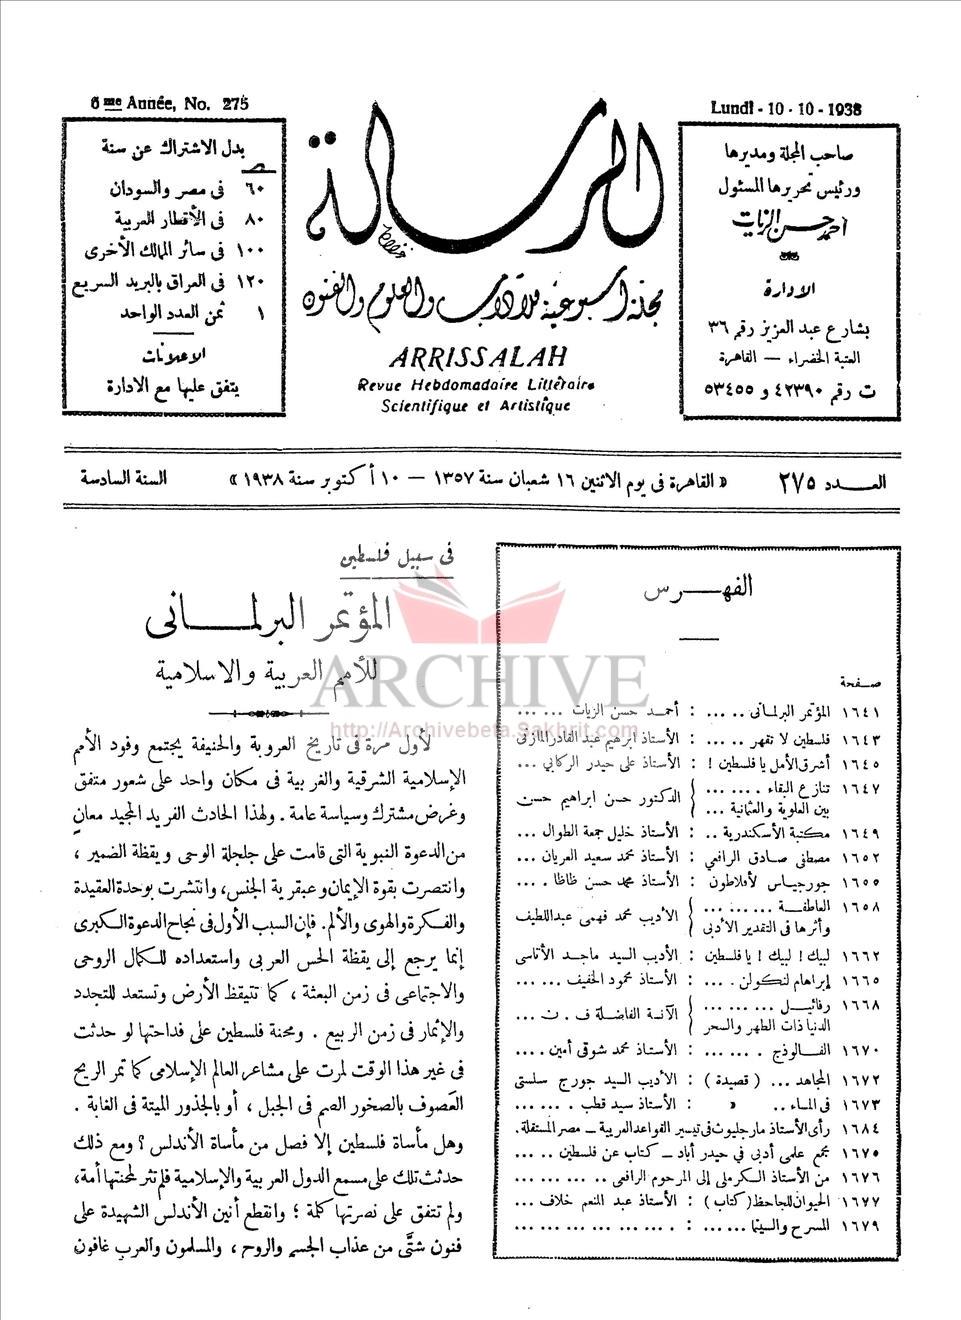 6me Année, No. 275
Lundi - 10 - 10 - 1938
صاحب المجلة ومديرها
ورئيس تحريرها المسئول
احمد حسن الزيات
الادارة
بشارع عبد العزيز رقم ٣٦
العتبة الخضراء — القاهرة
ت رقم ٤٢٣٩٠ و ٥٣٤٥٥
الرسالة
مجلة أسبوعية للآداب والعلوم والفنون
ARRISSALAH
Revue Hebdomadaire Littéraire
Scientifique et Artistique
بدل الاشتراك عن سنة
٦٠ فى مصر والسودان
٨٠ فى الأقطار العربية
١٠٠ فى سائر الممالك الأخرى
١٢٠ فى العراق بالبريد السريع
١ ثمن العدد الواحد
الاعلانات
يتفق عليها مع الادارة
العـــدد ٢٧٥
« القاهرة فى يوم الاثنين ١٦ شعبان سنة ١٣٥٧ — ١٠ أكتوبر سنة ١٩٣٨ »
السنة السادسة
الفهـــرس
صفحة
١٦٤١ المؤتمر البرلمانى .. ... : أحمد حسن الزيات ... ...
١٦٤٣ فلسطين لا تقهر .. ... : الأستاذ ابرهيم عبد القادر المازنى
١٦٤٥ أشرق الأمل يا فلسطين ! : الأستاذ على حيدر الركابي ...
١٦٤٧ تنازع البقاء . ... ...
بين العلوية والعثمانية ... } الدكتور حسن ابراهيم حسن
١٦٤٩ مكتبة الأسكندرية .. : الأستاذ خليل جمعة الطوال ...
١٦٥٢ مصطفى صادق الرافعي : الأستاذ محمد سعيد العريان ...
١٦٥٥ جورجياس لأفلاطون : الأستاذ محمد حسن ظاظا . ...
١٦٥٨ العاطفـــة ... ... ...
وأثرها فى التقدير الأدبى } الأديب محمد فهمى عبد اللطيف
١٦٦٢ لبيك ! لبيك ! يا فلسطين : الأديب السيد ماجد الأتاسى
١٦٦٥ إبراهام لنكولن . ... : الأستاذ محمود الخفيف ... ...
١٦٦٨ رفائيل ... ... ...
الدنيا ذات الطهر والسحر } الآنسة الفاضلة ف . ن ...
١٦٧٠ الفـــالوذج . ... ... : الأستاذ محمد شوقى أمين . ...
١٦٧٢ المجاهد ... ( قصيدة ) : الأديب السيد جورج سلستى
١٦٧٣ فى الماء .. » : الأستاذ سيد قطب . ... ...
١٦٨٤ رأى الأستاذ مارجليوث فى تيسير القواعد العربية — مصر المستقلة.
١٦٧٥ مجمع علمى أدبى في حيدر أباد — كتاب عن فلسطين .. ...
١٦٧٦ من الأستاذ الكرملى إلى المرحوم الرافعى . .. ... ... ...
١٦٧٧ الحيوان للجاحظ (كتاب) : الأستاذ عبد المنعم خلاف ...
١٦٧٩ المسرح والسينما ... ... : . ... ... ... ... ...
فى سبيل فلسطين
المؤتمر البرلمـــانى
للأمم العربية والاسلامية
لأول مرة فى تاريخ العروبة والحنيفة يجتمع وفود الأمم
الإسلامية الشرقية والغربية فى مكان واحد على شعور متفق
وغرض مشترك وسياسة عامة . ولهذا الحادث الفريد المجيد معانٍ
من الدعوة النبوية التى قامت على جلجلة الوحى ويقظة الضمير ،
وانتصرت بقوة الإيمان وعبقرية الجنس، وانتشرت بوحدة العقيدة
والفكرة والهوى والألم. فإن السبب الأول فى نجاح الدعوة الكبرى
إنما يرجع إلى يقظة الحس العربى واستعداده للكمال الروحى
والاجتماعى فى زمن البعثة ، كما تتيقظ الأرض وتستعد للتجدد
والإثمار فى زمن الربيع . ومحنة فلسطين على فداحتها لو حدثت
فى غير هذا الوقت لمرت على مشاعر العالم الإسلامى كما تمر الريح
العَصوف بالصخور الصم فى الجبل ، أو بالجذور الميتة فى الغابة .
وهل مأساة فلسطين إلا فصل من مأساة الأندلس ؟ ومع ذلك
حدثت تلك على مسمع الدول العربية والإسلامية فلم تثر لمحنتها أمة،
ولم تتفق على نصرتها كلمة ؛ وانقطع أنين الأندلس الشهيدة على
فنون شتَّى من عذاب الجسم والروح ، والمسلمون والعرب غافون
ARCHIVE
http://Archivebeta.Sakhrit.com